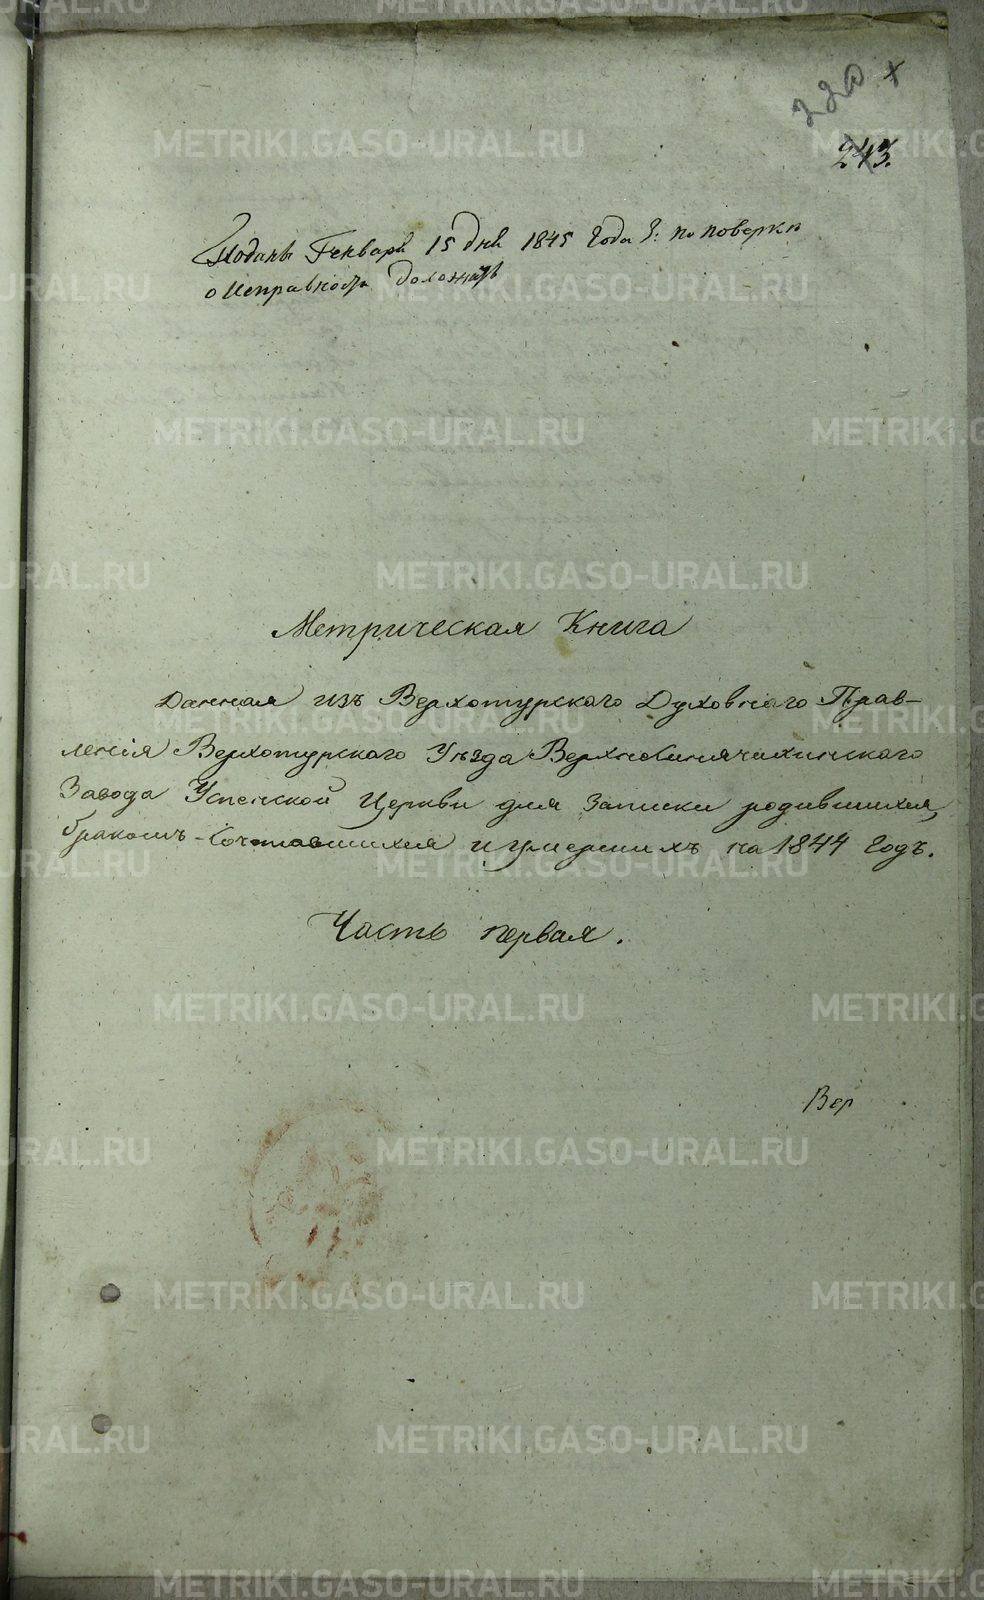 220 х
243.
Поданъ Генваря 15 дня 1845 года По поверки
о исправности доложить
Метрическая Книга
Данная изъ Верхотурского Духовного Прав-
ленія Верхотурского Уѣзда Верхнесинячихинского
Завода Успенской Церкви для Записки родившихся,
бракомъ-Сочетавшихся и умершихъ на 1844 Годъ.
Часть первая.
Вер
METRIKI.GASO-URAL.RU